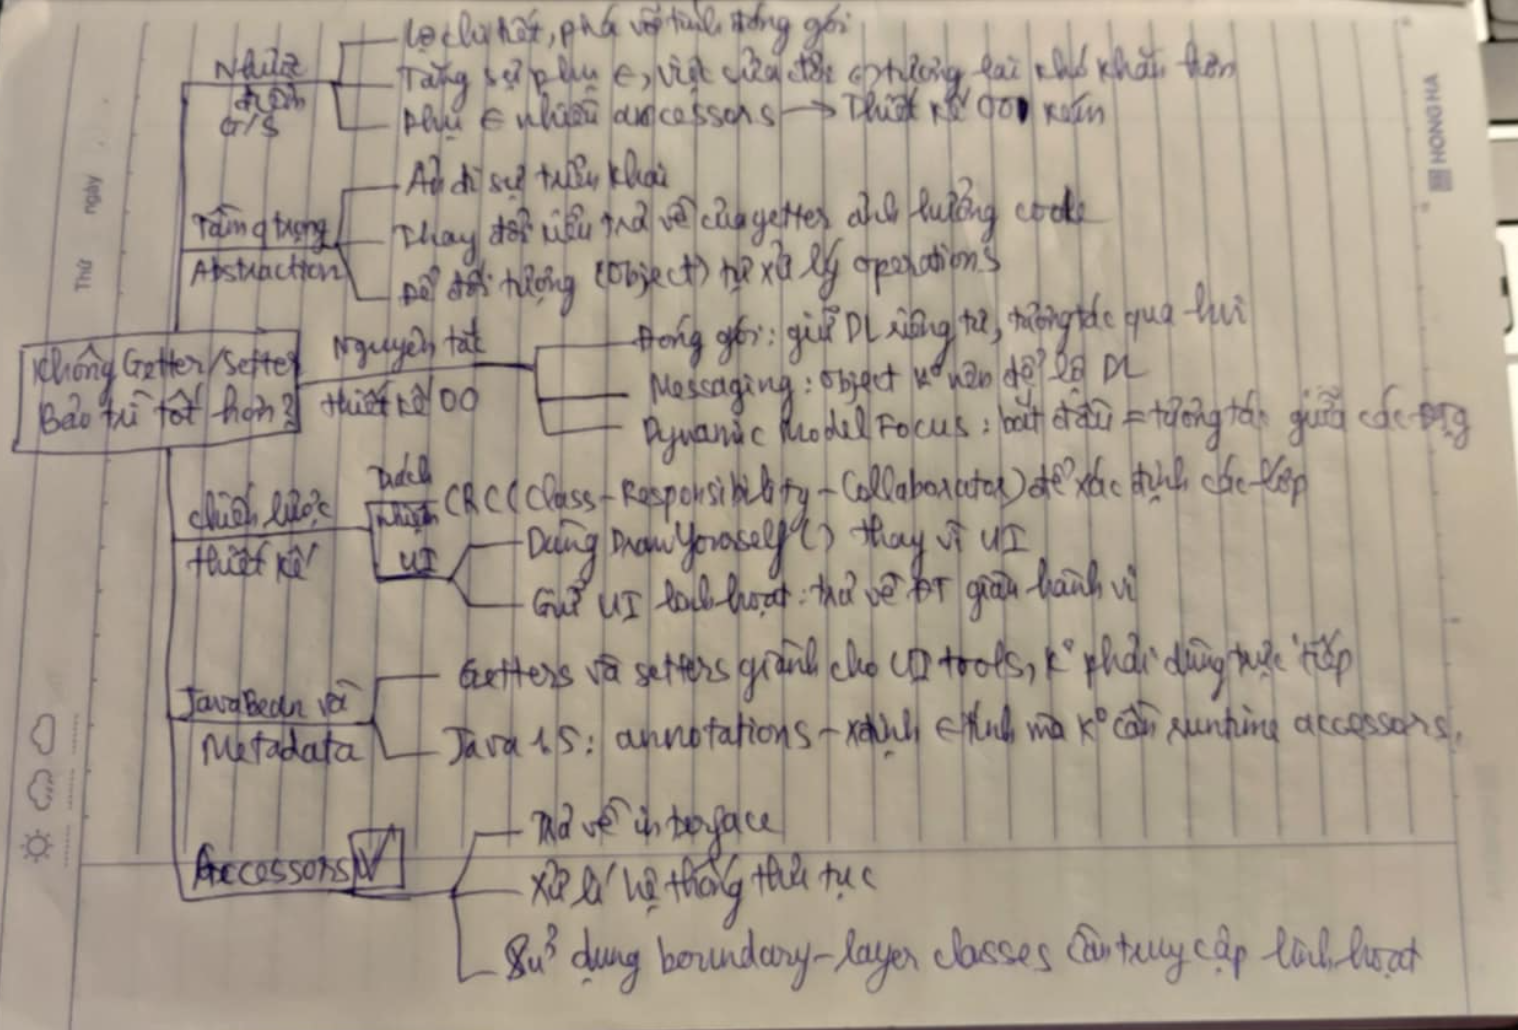 Nhược
điểm
G/S
Lộ chi tiết, phá vỡ tính đóng gói
Tăng sự phụ ∈, việc sửa đổi tương lai khó khăn hơn
Phụ ∈ nhiều accessors → Thiết kế OO kém
Tầm qtrọng
Abstraction
Ẩn đi sự triển khai
Thay đổi kiểu trả về của getter ảnh hưởng code
Để đối tượng (object) tự xử lý operations
Không Getter/Setter
Bảo trì tốt hơn?
Nguyên tắc
thiết kế OO
Đóng gói: giữ DL riêng tư, tương tác qua hvi
Messaging: object k° nên để lộ DL
Dynamic Model Focus: bắt đầu = tương tác giữa các
Chiến lược
thiết kế
Trách
nhiệm
CRC (Class-Responsibility-Collaborator) để xác định các lớp
UI
Dùng DrawYourself() thay vì UI
Giữ UI linh hoạt: trả về ĐT giàu hành vi
JavaBean và
Metadata
Getters và setters giành cho UI tools, k° phải dùng trực tiếp
Java 1.5: annotations - xđịnh ∈ tính mà k° cần runtime accessors.
Accessors
Trả về interface
Xử lí hệ thống thủ tục
Sử dụng boundary-layer classes cần truy cập linh hoạt
Thứ
ngày
HONG HA